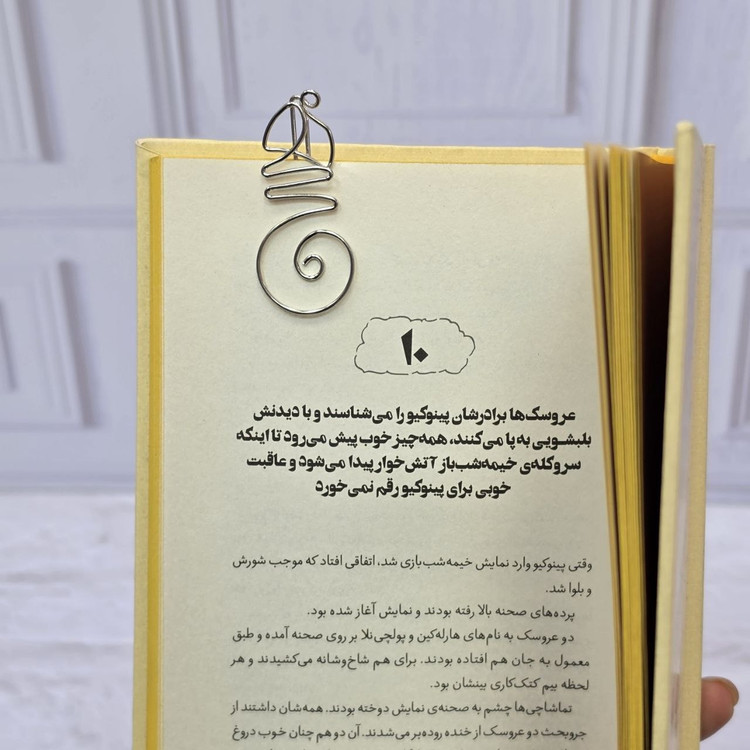 ۱۰
عروسک‌ها برادرشان پینوکیو را می‌شناسند و با دیدنش
بلبشویی به پا می‌کنند، همه‌چیز خوب پیش می‌رود تا اینکه
سروکله‌ی خیمه‌شب‌باز آتش‌خوار پیدا می‌شود و عاقبت
خوبی برای پینوکیو رقم نمی‌خورد
وقتی پینوکیو وارد نمایش خیمه‌شب‌بازی شد، اتفاقی افتاد که موجب شورش
و بلوا شد.
پرده‌های صحنه بالا رفته بودند و نمایش آغاز شده بود.
دو عروسک به نام‌های هارله‌کین و پولچی‌نلا بر روی صحنه آمده و طبق
معمول به جان هم افتاده بودند. برای هم شاخ‌وشانه می‌کشیدند و هر
لحظه بیم کتک‌کاری بینشان بود.
تماشاچی‌ها چشم به صحنه‌ی نمایش دوخته بودند. همه‌شان داشتند از
جروبحث دو عروسک از خنده روده‌بر می‌شدند. آن دو هم چنان خوب دروغ